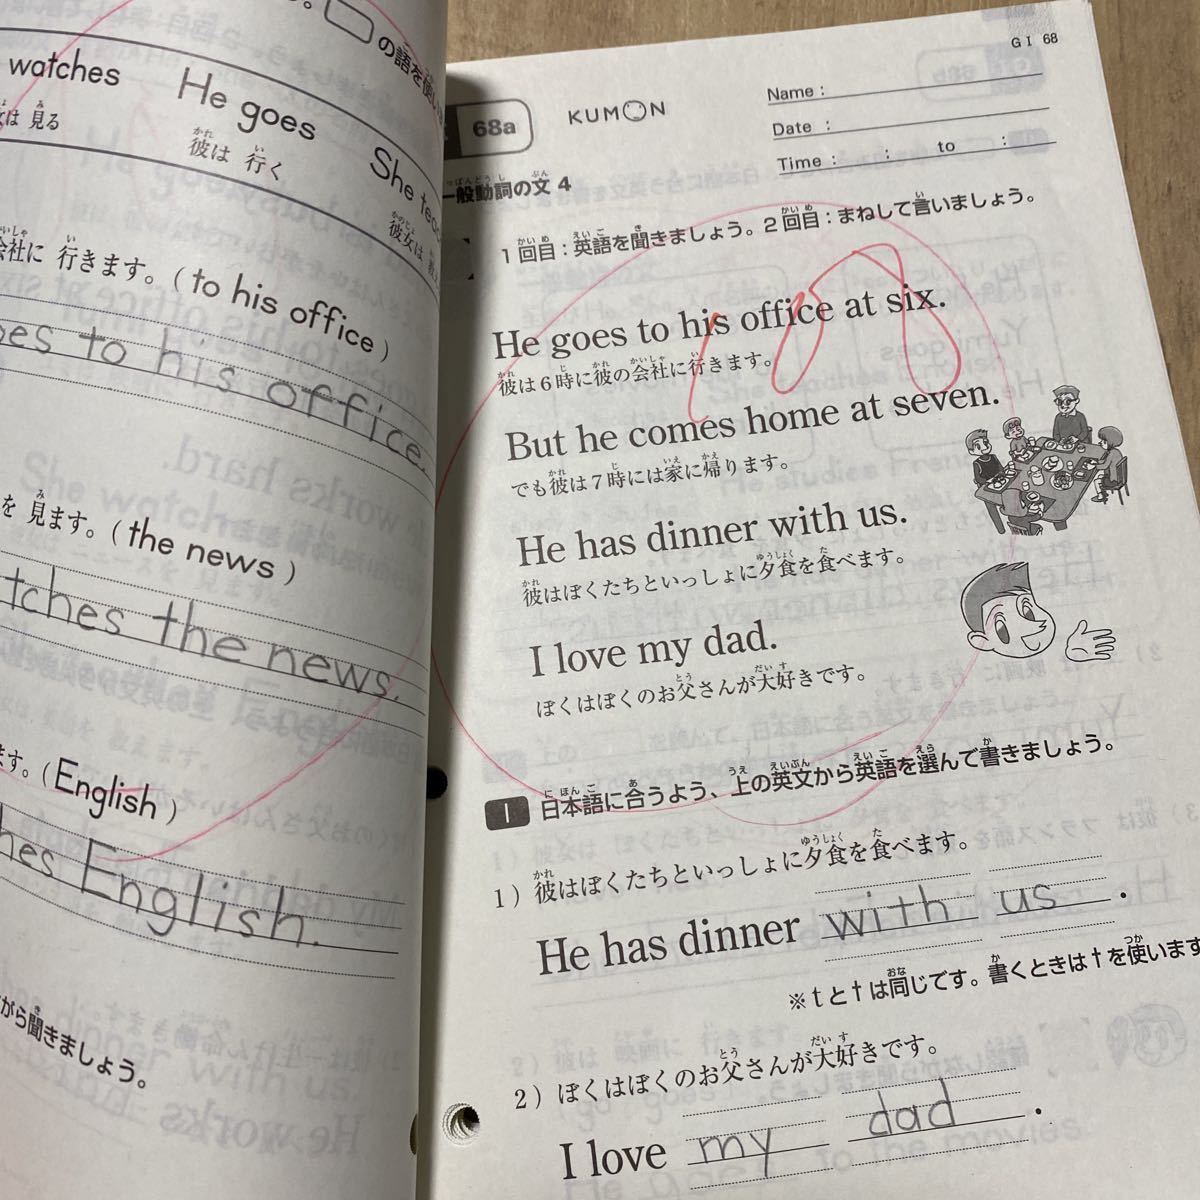 の語を使い
watches
He goes
She teac
は 見る
彼は 行く
彼女は 教え
会社に 行きます。( to his office )
oes to his office.
を 見ます。( the news )
tches the news.
ます。( English )
hes English.
がら聞きましょう。
GI 68
68a
KUMON
Name :
Date :
Time : : to :
一般動詞の文 4
1回目:英語を聞きましょう。2回目:まねして言いましょう。
100
He goes to his office at six.
彼は6時に彼の会社に行きます。
But he comes home at seven.
でも彼は7時には家に帰ります。
He has dinner with us.
彼はぼくたちといっしょに夕食を食べます。
I love my dad.
ぼくはぼくのお父さんが大好きです。
1 日本語に合うよう、上の英文から英語を選んで書きましょう。
1) 彼はぼくたちといっしょに夕食を食べます。
He has dinner with us .
※tとtは同じです。書くときはtを使います
2) ぼくはぼくのお父さんが大好きです。
I love my dad .